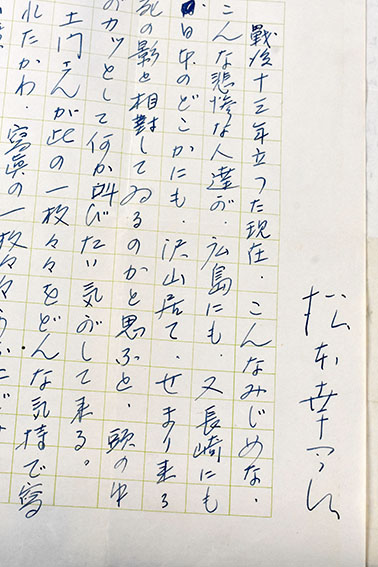 松本幸四郎
戦後十三年立つた現在.こんなみじめな.
こんな悲惨な人達が.広島にも.又長崎にも
日本のどこかにも.沢山居て.せまり来る
死の影と相對してゐるのかと思ふと.頭の中
がカッとして何か叫びたい気がして来る。
土門さんが此の一枚々々をどんな気持で寫
れたかわ.寫真の一枚々々